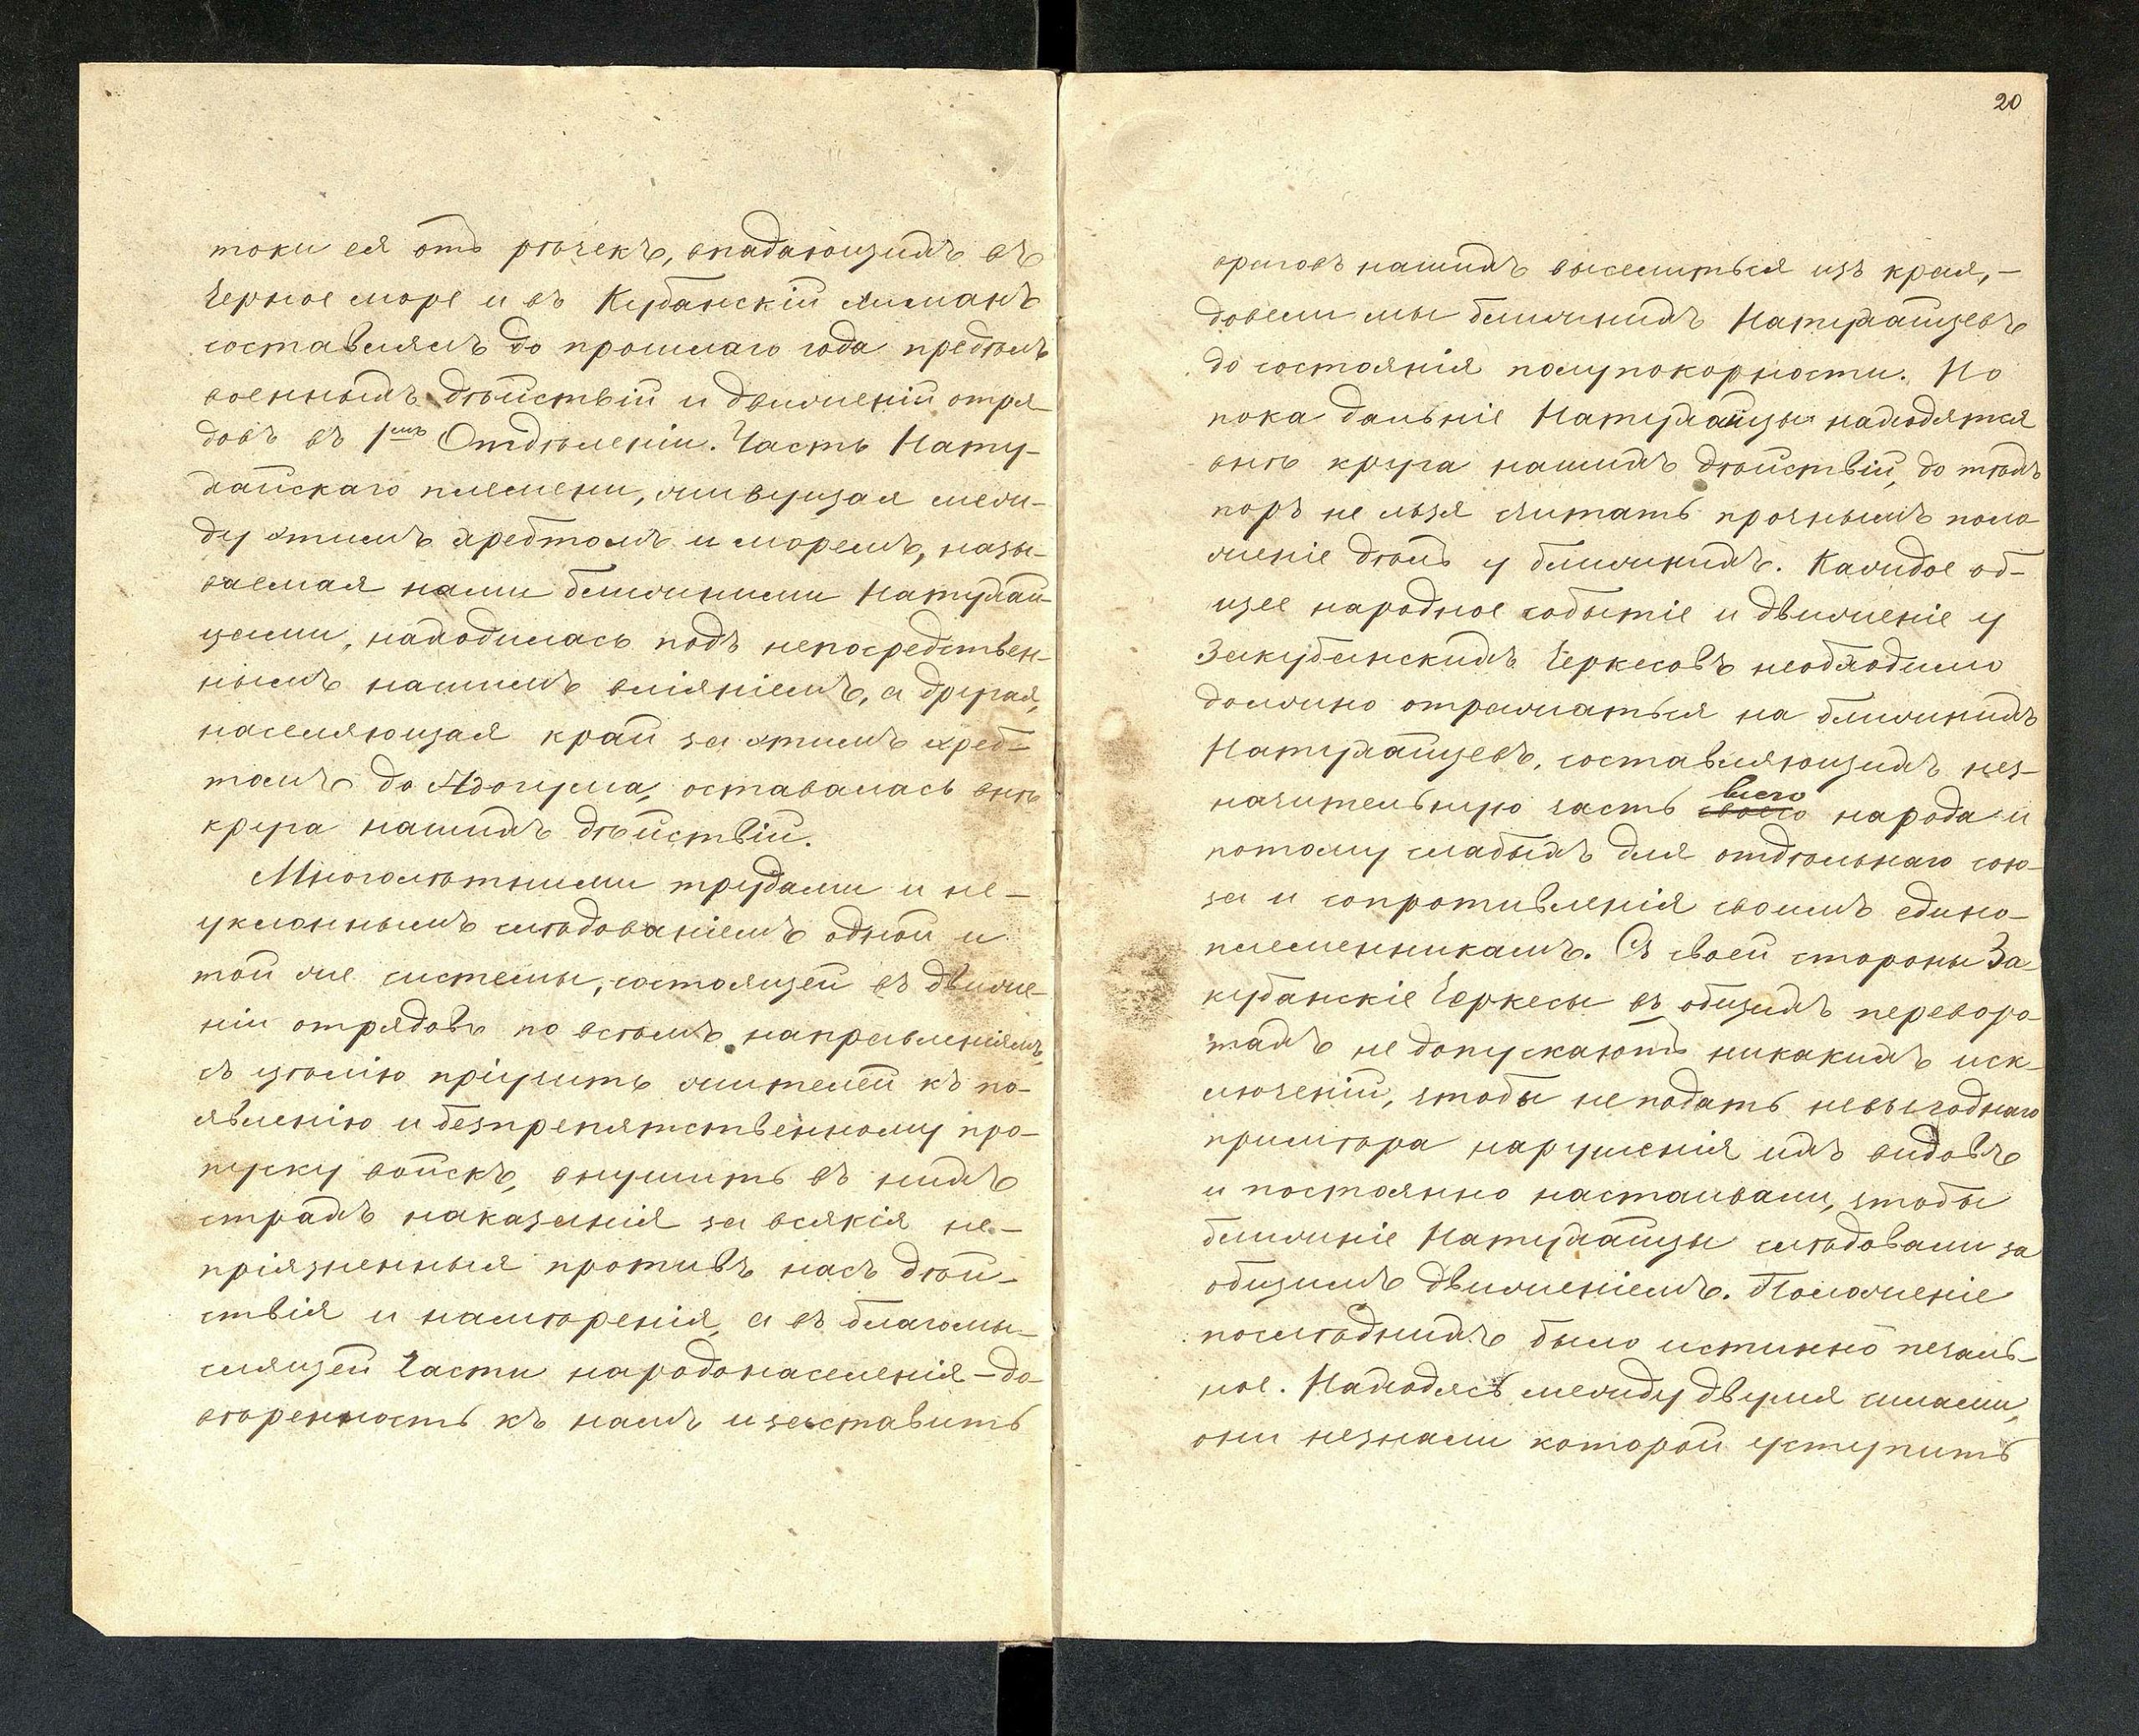 токи ея отъ рѣчекъ, впадающихъ въ
Черное море и въ Кубанскій лиманъ
составлялъ до прошлаго года предѣлъ
военныхъ дѣйствій и движеній отря-
довъ въ 1мъ Отдѣленіи. Часть Нату-
хайскаго племени, живущая меж-
ду этимъ хребтомъ и моремъ, назы-
ваемая нами ближними Натухай-
цами, находилась подъ непосредствен-
нымъ нашимъ вліяніемъ, а другая,
населяющая край за этимъ хреб-
томъ до Адагума, оставалась внѣ
круга нашихъ дѣйствій.
Многолѣтними трудами и не-
уклоннымъ слѣдованіемъ одной и
той же системы, состоящей въ движе-
ніи отрядовъ по всѣмъ направленіямъ,
съ цѣлію пріучить жителей къ по-
явленію и безпрепятственному про-
пуску войскъ, внушить въ нихъ
страхъ наказанія за всякія не-
пріязненныя противъ насъ дѣй-
ствія и намѣренія, а въ благомы-
слящей части народонаселенія - до-
вѣренность къ намъ и заставить
20
враговъ нашихъ выселиться изъ края, -
довели мы ближнихъ Натухайцевъ
до состоянія полупокорности. Но
пока дальніе Натухайцы находятся
внѣ круга нашихъ дѣйствій, до тѣхъ
поръ не льзя считать прочнымъ поло
женіе дѣлъ у ближнихъ. Каждое об-
щее народное событіе и движеніе у
Закубанскихъ Черкесовъ необходимо
должно отражаться на ближнихъ
Натухайцевъ, составляющихъ нез-
начительную часть своего всего народа и
потому слабыхъ для отдѣльнаго сою-
за и сопротивленія своимъ едино-
племенникамъ. Съ своей стороны За
кубанскіе Черкесы въ общихъ переворо
тахъ не допускаютъ никакихъ иск-
люченій, чтобы не подать невыгоднаго
примѣра нарушенія ихъ видовъ
и постоянно настаивали, чтобы
ближніе Натухайцы слѣдовали за
общимъ движеніемъ. Положеніе
послѣднихъ было истинно печаль-
ное. Находясь между двумя силами,
они незнали которой уступить